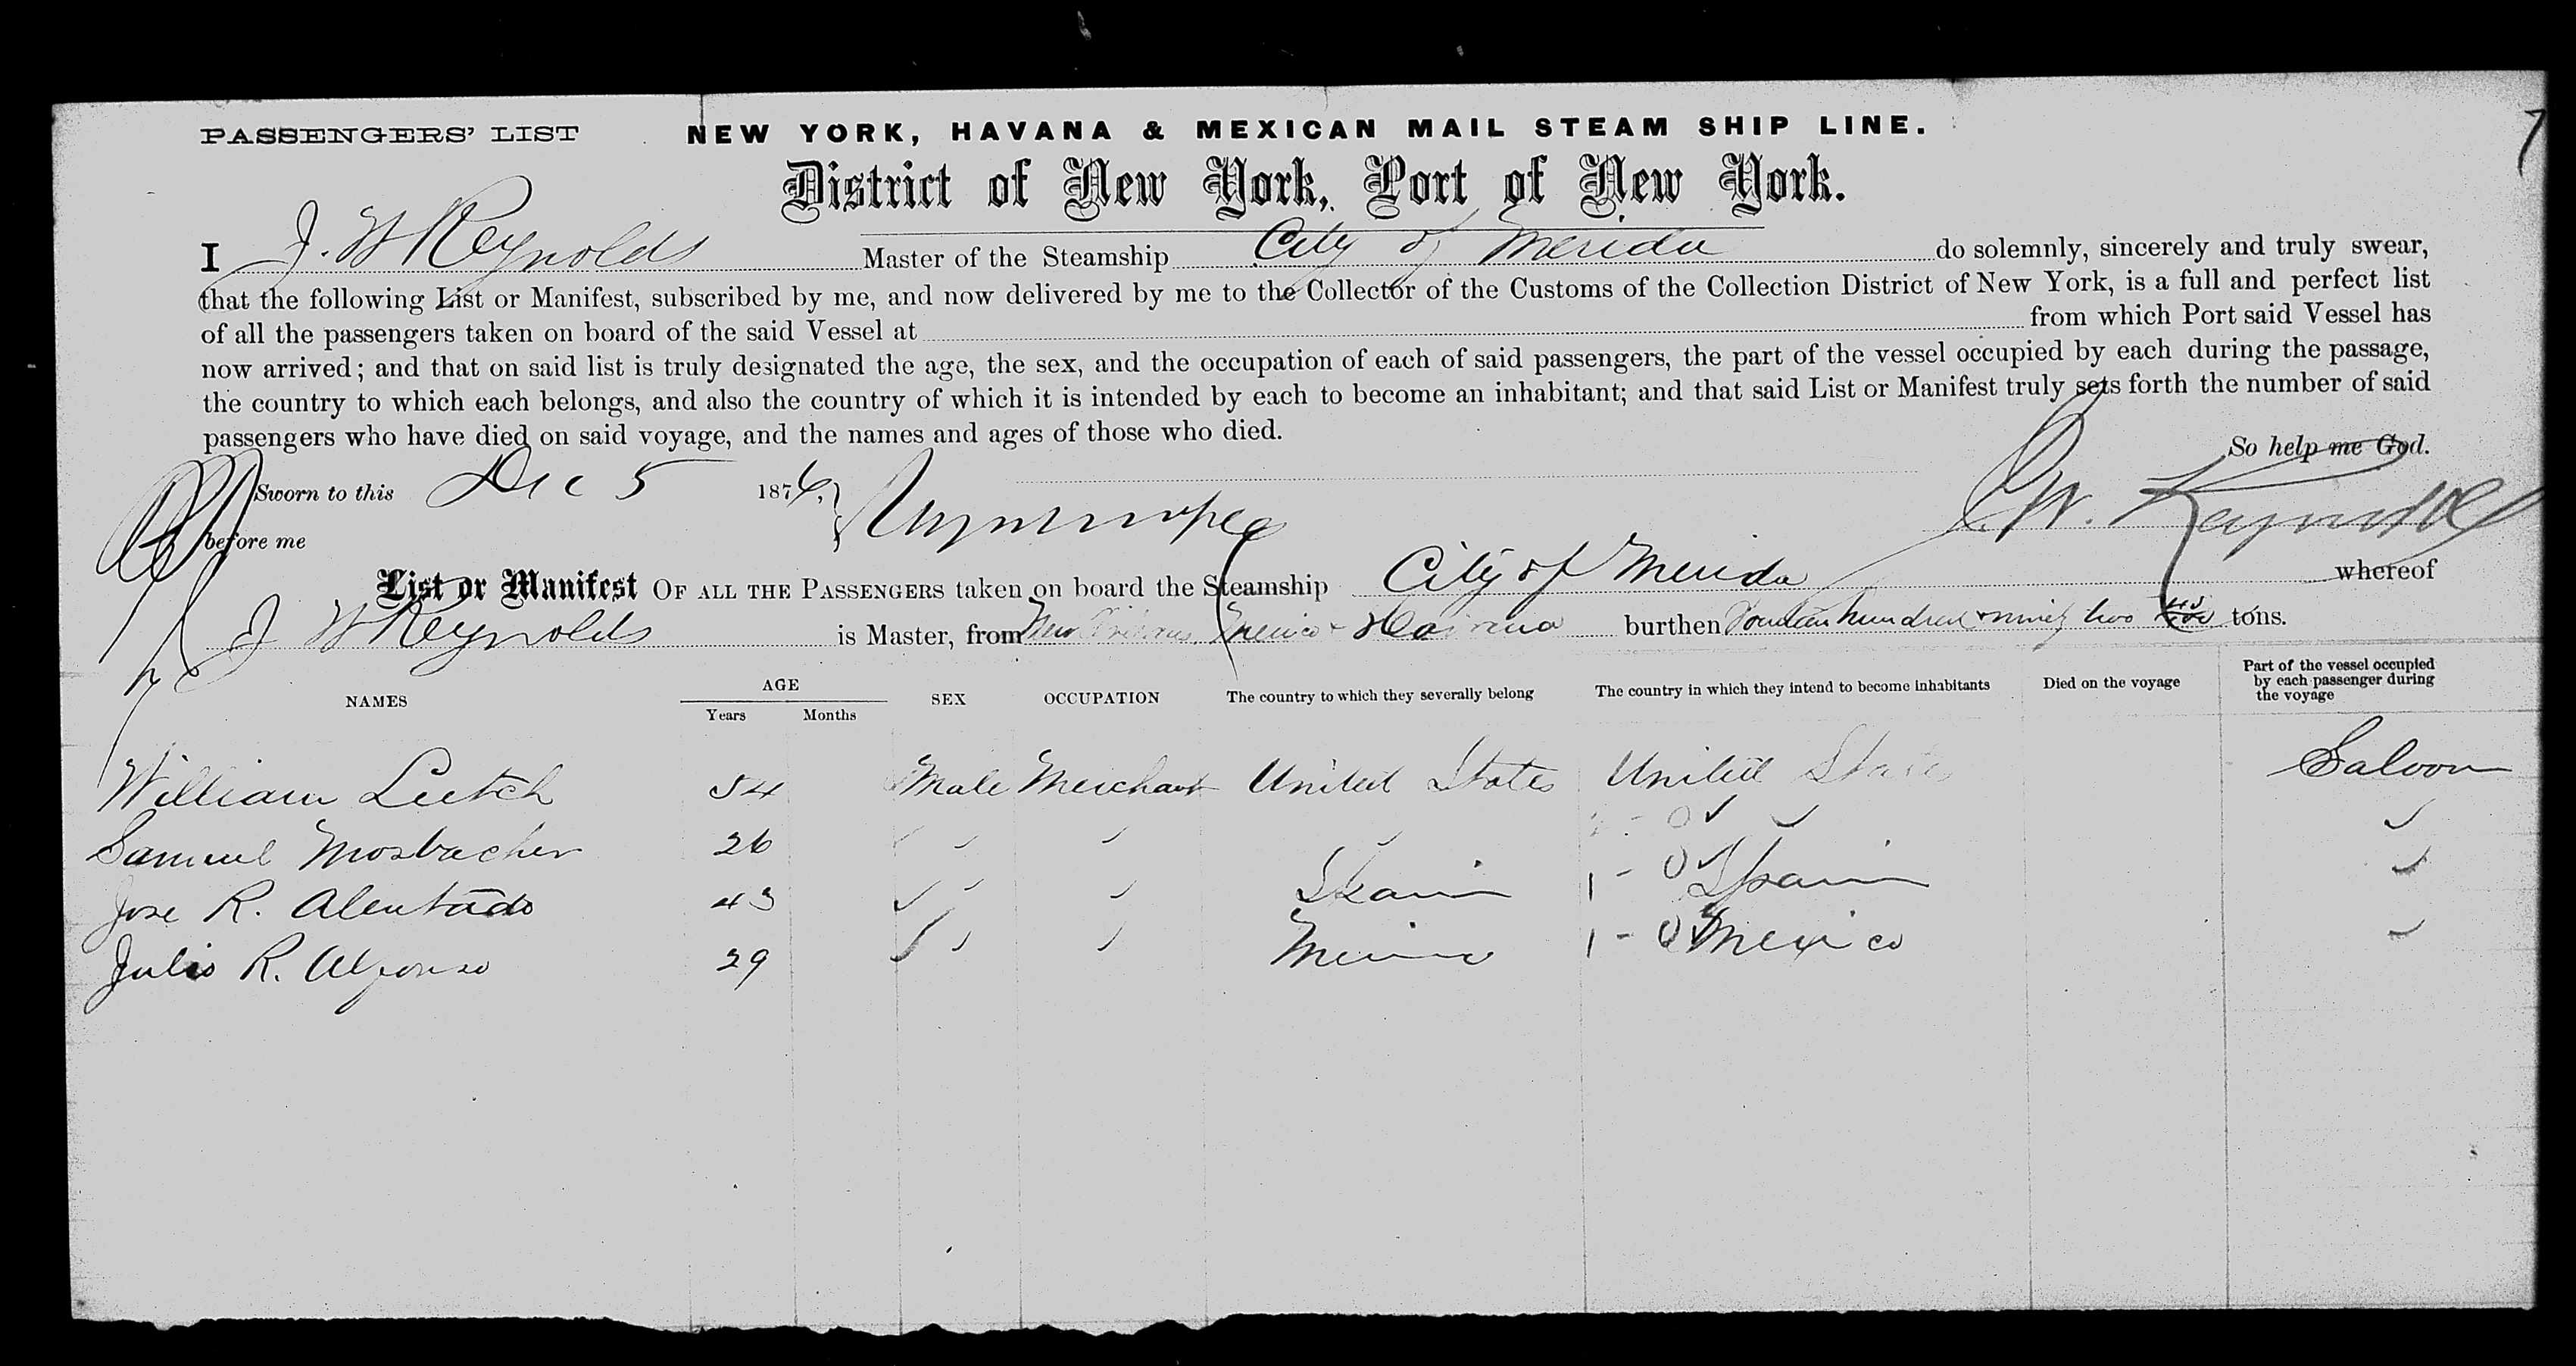 PASSENGERS' LIST NEW YORK, HAVANA & MEXICAN MAIL STEAM SHIP LINE.
District of New York, Port of New York.
I J. W Reynolds Master of the Steamship City of Merida do solemnly, sincerely and truly swear,
that the following List or Manifest, subscribed by me, and now delivered by me to the Collector of the Customs of the Collection District of New York, is a full and perfect list
of all the passengers taken on board of the said Vessel at from which Port said Vessel has
now arrived; and that on said list is truly designated the age, the sex, and the occupation of each of said passengers, the part of the vessel occupied by each during the passage,
the country to which each belongs, and also the country of which it is intended by each to become an inhabitant; and that said List or Manifest truly sets forth the number of said
passengers who have died on said voyage, and the names and ages of those who died.
So help me God.
Sworn to this Dec 5 1876,
before me J. W. Reynolds
List or Manifest OF ALL THE PASSENGERS taken on board the Steamship City of Merida whereof
J W Reynolds is Master, from New Orleans Mexico & Havana burthen Fourteen hundred & ninety two tons.
NAMES AGE SEX OCCUPATION The country to which they severally belong The country in which they intend to become inhabitants Died on the voyage Part of the vessel occupied by each passenger during the voyage
Years Months
William Leetch 54 Male Merchant United States United State Saloon
Samuel Mosbacher 26
Jose R. Alentado 43 Spain 1 - 0 Spain
Julio R. Alfonso 29 Mexico 1 - 0 Mexico